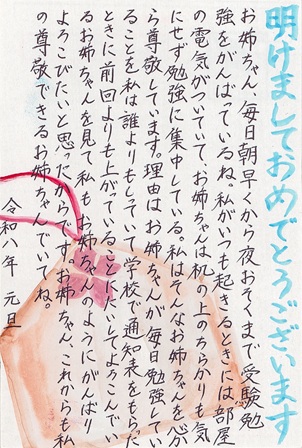 明けましておめでとうございます
お姉ちゃん、毎日朝早くから夜おそくまで受験勉
強をがんばっているね。私がいつも起きるときには部屋
の電気がついていて、お姉ちゃんは机の上のちらかりも気
にせず勉強に集中している。私はそんなお姉ちゃんを心か
ら尊敬しています。理由はお姉ちゃんが毎日勉強してい
ることを私は誰よりもしっていて学校で通知表をもらった
ときに前回よりも上がっていることに対してよろこんでい
るお姉ちゃんを見て、私もお姉ちゃんのようにがんばり
よろこびたいと思ったからです。お姉ちゃん、これからも私
の尊敬できるお姉ちゃんでいてね。
令和八年 元旦